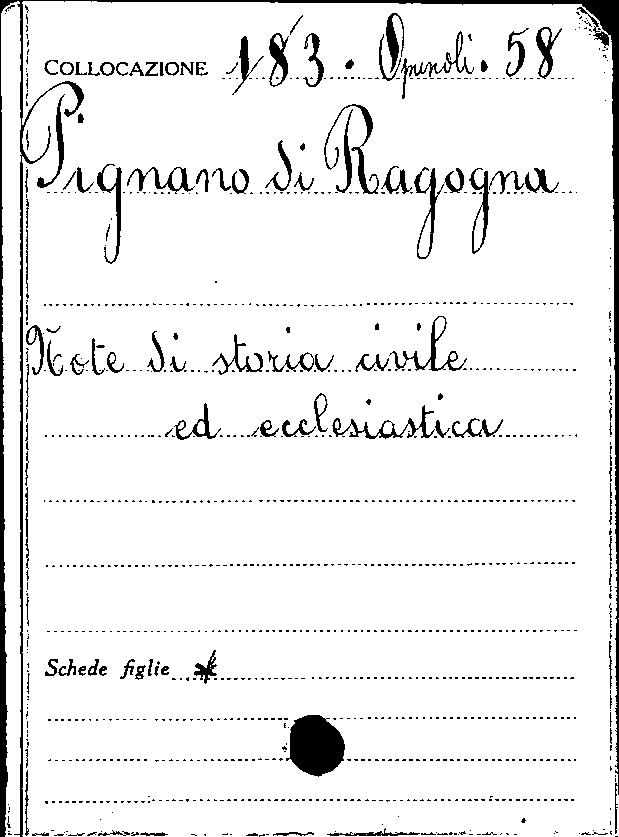 COLLOCAZIONE 183. Opuscoli. 58
Pignano di Ragogna
Note di storia civile
ed ecclesiastica
Schede figlie *